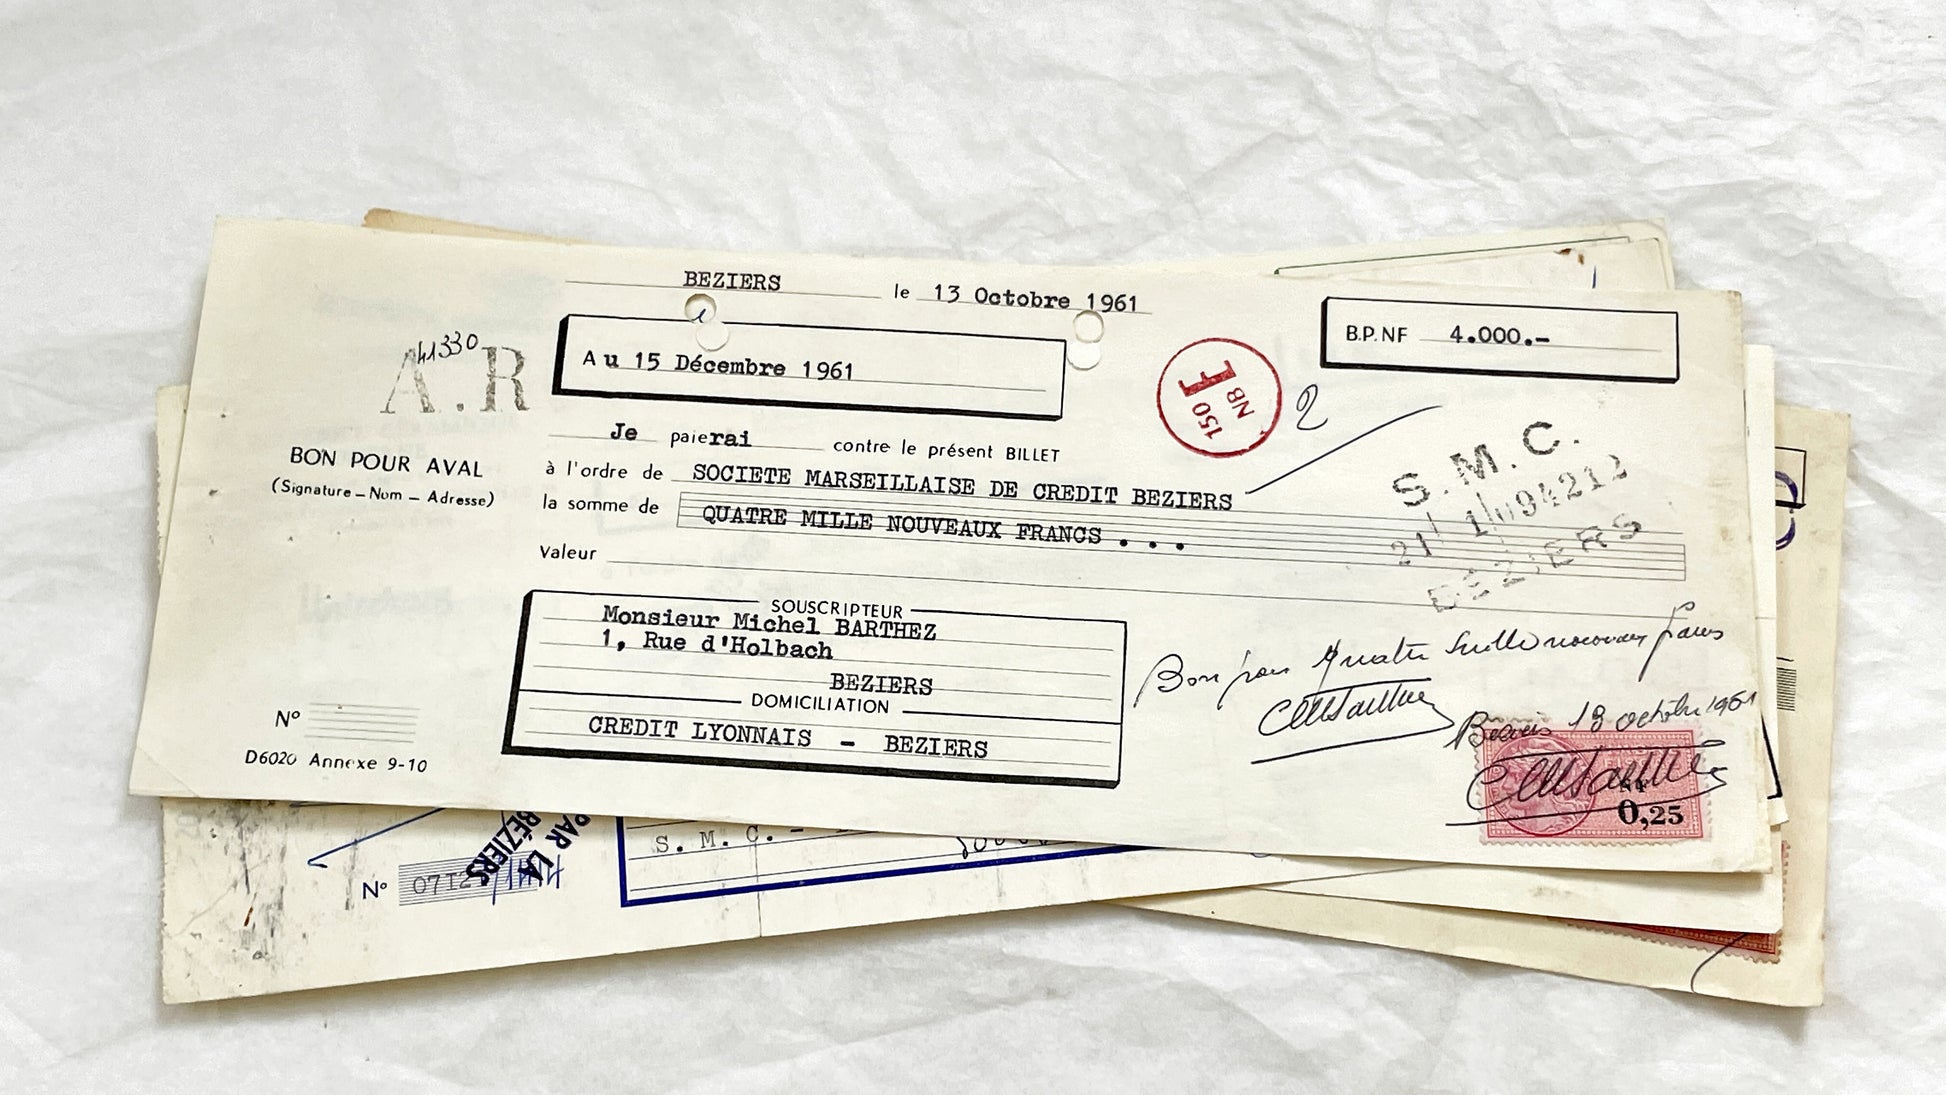 BEZIERS le 13 Octobre 1961
B.P.NF 4.000.-
41330
A.R
Au 15 Décembre 1961
150 F NB
2
Je paierai contre le présent BILLET
à l'ordre de SOCIETE MARSEILLAISE DE CREDIT BEZIERS
la somme de QUATRE MILLE NOUVEAUX FRANCS . . .
Valeur
S.M.C.
21 1 094212
BEZIERS
BON POUR AVAL
(Signature – Nom – Adresse)
SOUSCRIPTEUR
Monsieur Michel BARTHEZ
1, Rue d'Holbach
BEZIERS
DOMICILIATION
CREDIT LYONNAIS – BEZIERS
Bon pour Quatre mille nouveaux francs
Béziers 13 octobre 1961
0,25
N°
D6020 Annexe 9-10
PAR LA
BÉZIERS
S. M. C. -
N° 0712